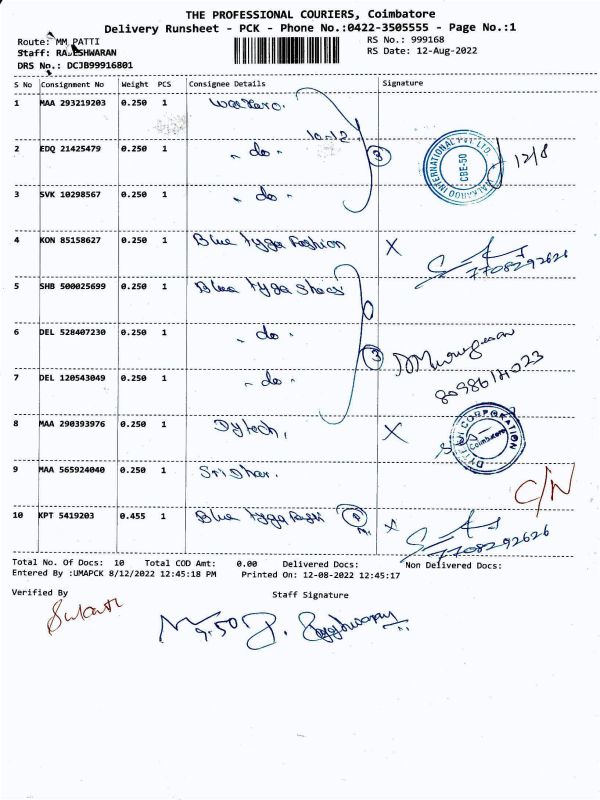 THE PROFESSIONAL COURIERS, Coimbatore
Delivery Runsheet - PCK - Phone No.:0422-3505555 - Page No.:1
Route: MM PATTI RS No.: 999168
Staff: RAJESHWARAN RS Date: 12-Aug-2022
DRS No.: DCJB99916801
S No Consignment No Weight PCS Consignee Details Signature
1 MAA 293219203 0.250 1
10-12
2 EDQ 21425479 0.250 1 - do - 3 INTERNATIONAL PVT LTD CBE-50 12/8
3 SVK 10298567 0.250 1 - do -
4 KON 85158627 0.250 1 Blue tyga Fashion X 7708292626
5 SHB 500025699 0.250 1 Blue tyga
6 DEL 528407230 0.250 1 - do - 3
7 DEL 120543049 0.250 1 - do -
8 MAA 290393976 0.250 1 Dytech, X CORPORATION Coimbatore
9 MAA 565924040 0.250 1 Sridhar. C/N
10 KPT 5419203 0.455 1 Blue tyga X 7708292626
Total No. Of Docs: 10 Total COD Amt: 0.00 Delivered Docs: Non Delivered Docs:
Entered By :UMAPCK 8/12/2022 12:45:18 PM Printed On: 12-08-2022 12:45:17
Verified By Staff Signature
9.50